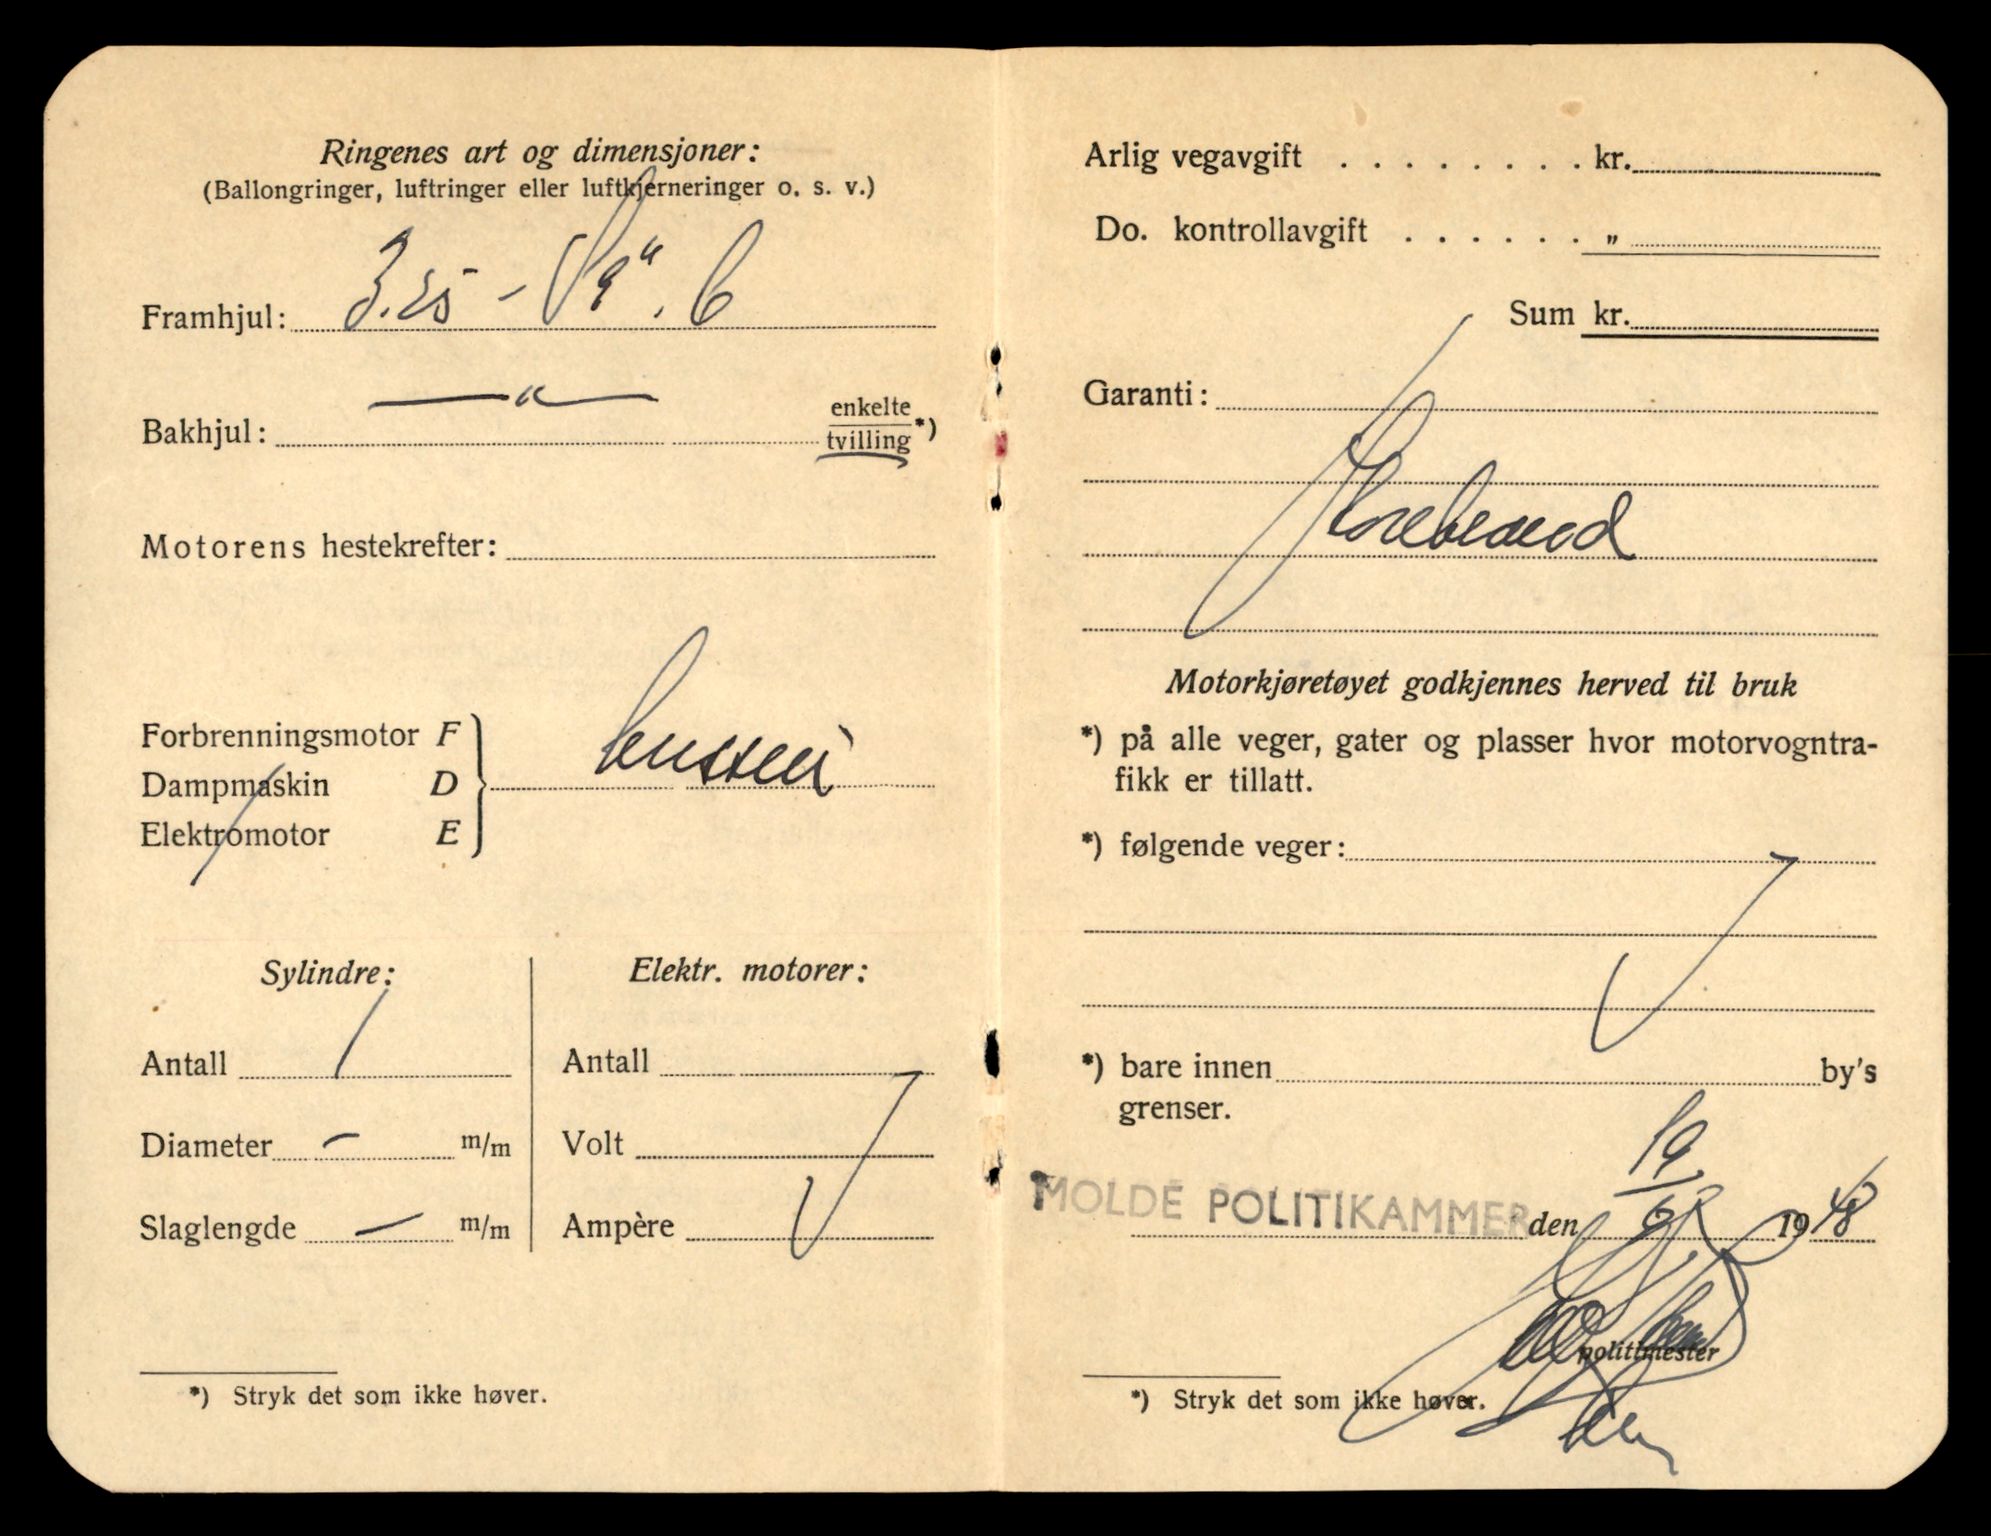 Ringenes art og dimensjoner:
(Ballongringer, luftringer eller luftkjerneringer o. s. v.)
Framhjul: 3.25 - 19". 6
Bakhjul: — " — enkelte
tvilling *)
Motorens hestekrefter:
Forbrenningsmotor F
Dampmaskin D
Elektromotor E
Sylindre:
Antall 1
Diameter – m/m
Slaglengde – m/m
Elektr. motorer:
Antall
Volt
Ampère
*) Stryk det som ikke høver.
Arlig vegavgift . . . . . . . . kr.
Do. kontrollavgift . . . . . . „
Sum kr.
Garanti:
Storebrand
Motorkjøretøyet godkjennes herved til bruk
*) på alle veger, gater og plasser hvor motorvogntra-
fikk er tillatt.
*) følgende veger:
*) bare innen by's
grenser.
MOLDE POLITIKAMMER den 19/6 1948
politimester
*) Stryk det som ikke høver.